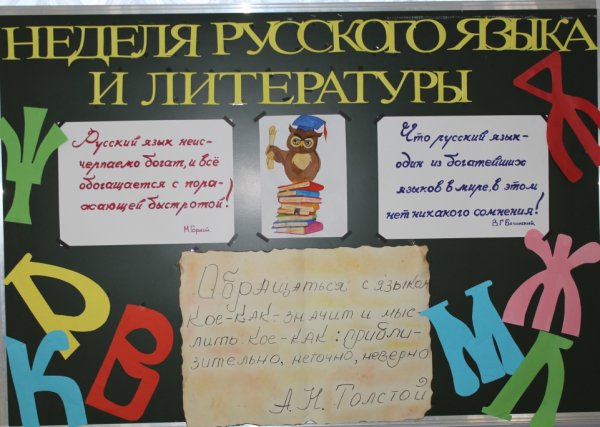 НЕДЕЛЯ РУССКОГО ЯЗЫКА
И ЛИТЕРАТУРЫ
Русский язык неис-
черпаемо богат, и всё
обогащается с пора-
жающей быстротой!
М.Горький
Что русский язык-
один из богатейших
языков в мире, в этом
нет никакого сомнения!
В.Г.Белинский
Обращаться с языком
кое-как-значит и мыс-
лить кое-как: прибли-
зительно, неточно, неверно
А.Н. Толстой
Ж
Р
К
В
М
Я
Ж
Л